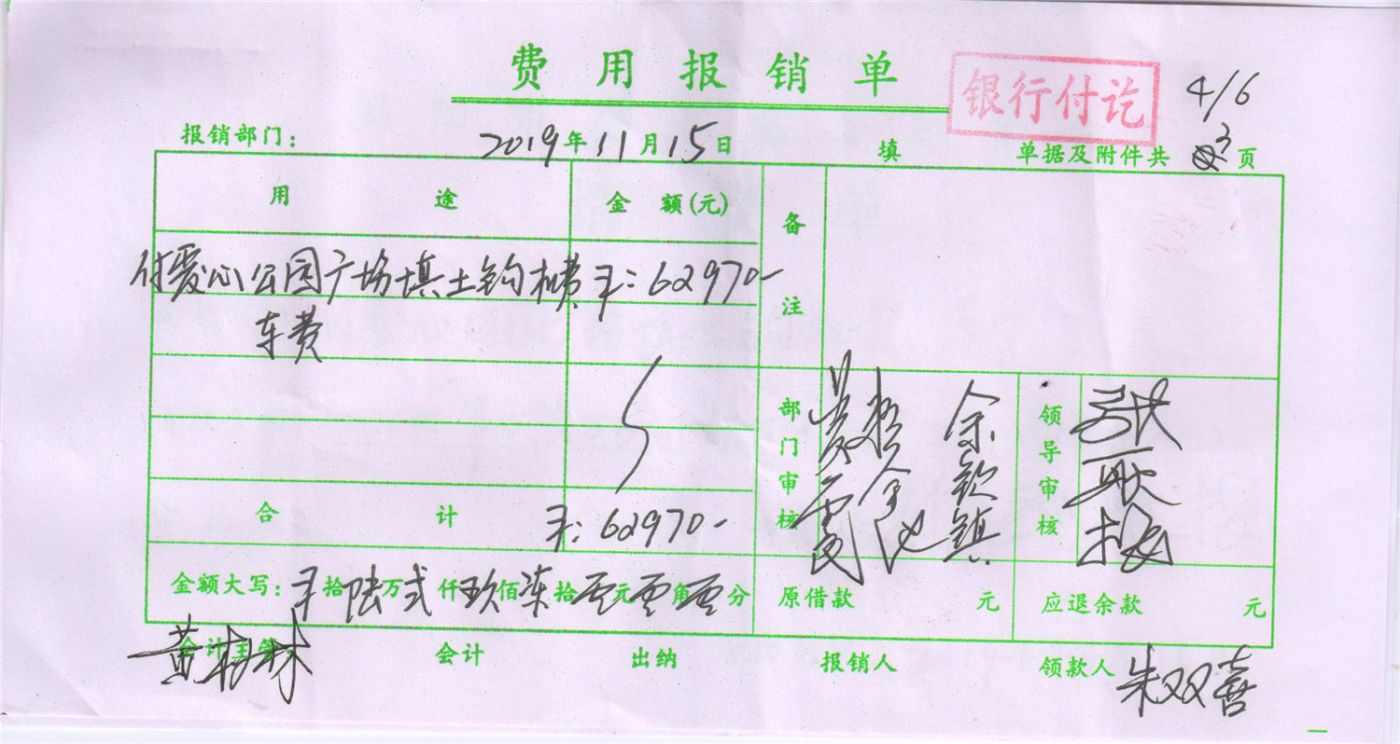 费用报销单
银行付讫
4/6
报销部门： 2019年11月15日 填 单据及附件共 3 页
用途 金额(元) 备注
付爱心公园广场填土钩机费 ¥：62970-
车费
部门审核 余钦镇 领导审核
合计 ¥：62970-
金额大写：¥拾陆万弍仟玖佰柒拾零元零角零分 原借款 元 应退余款 元
会计主管 会计 出纳 报销人 领款人 朱双喜